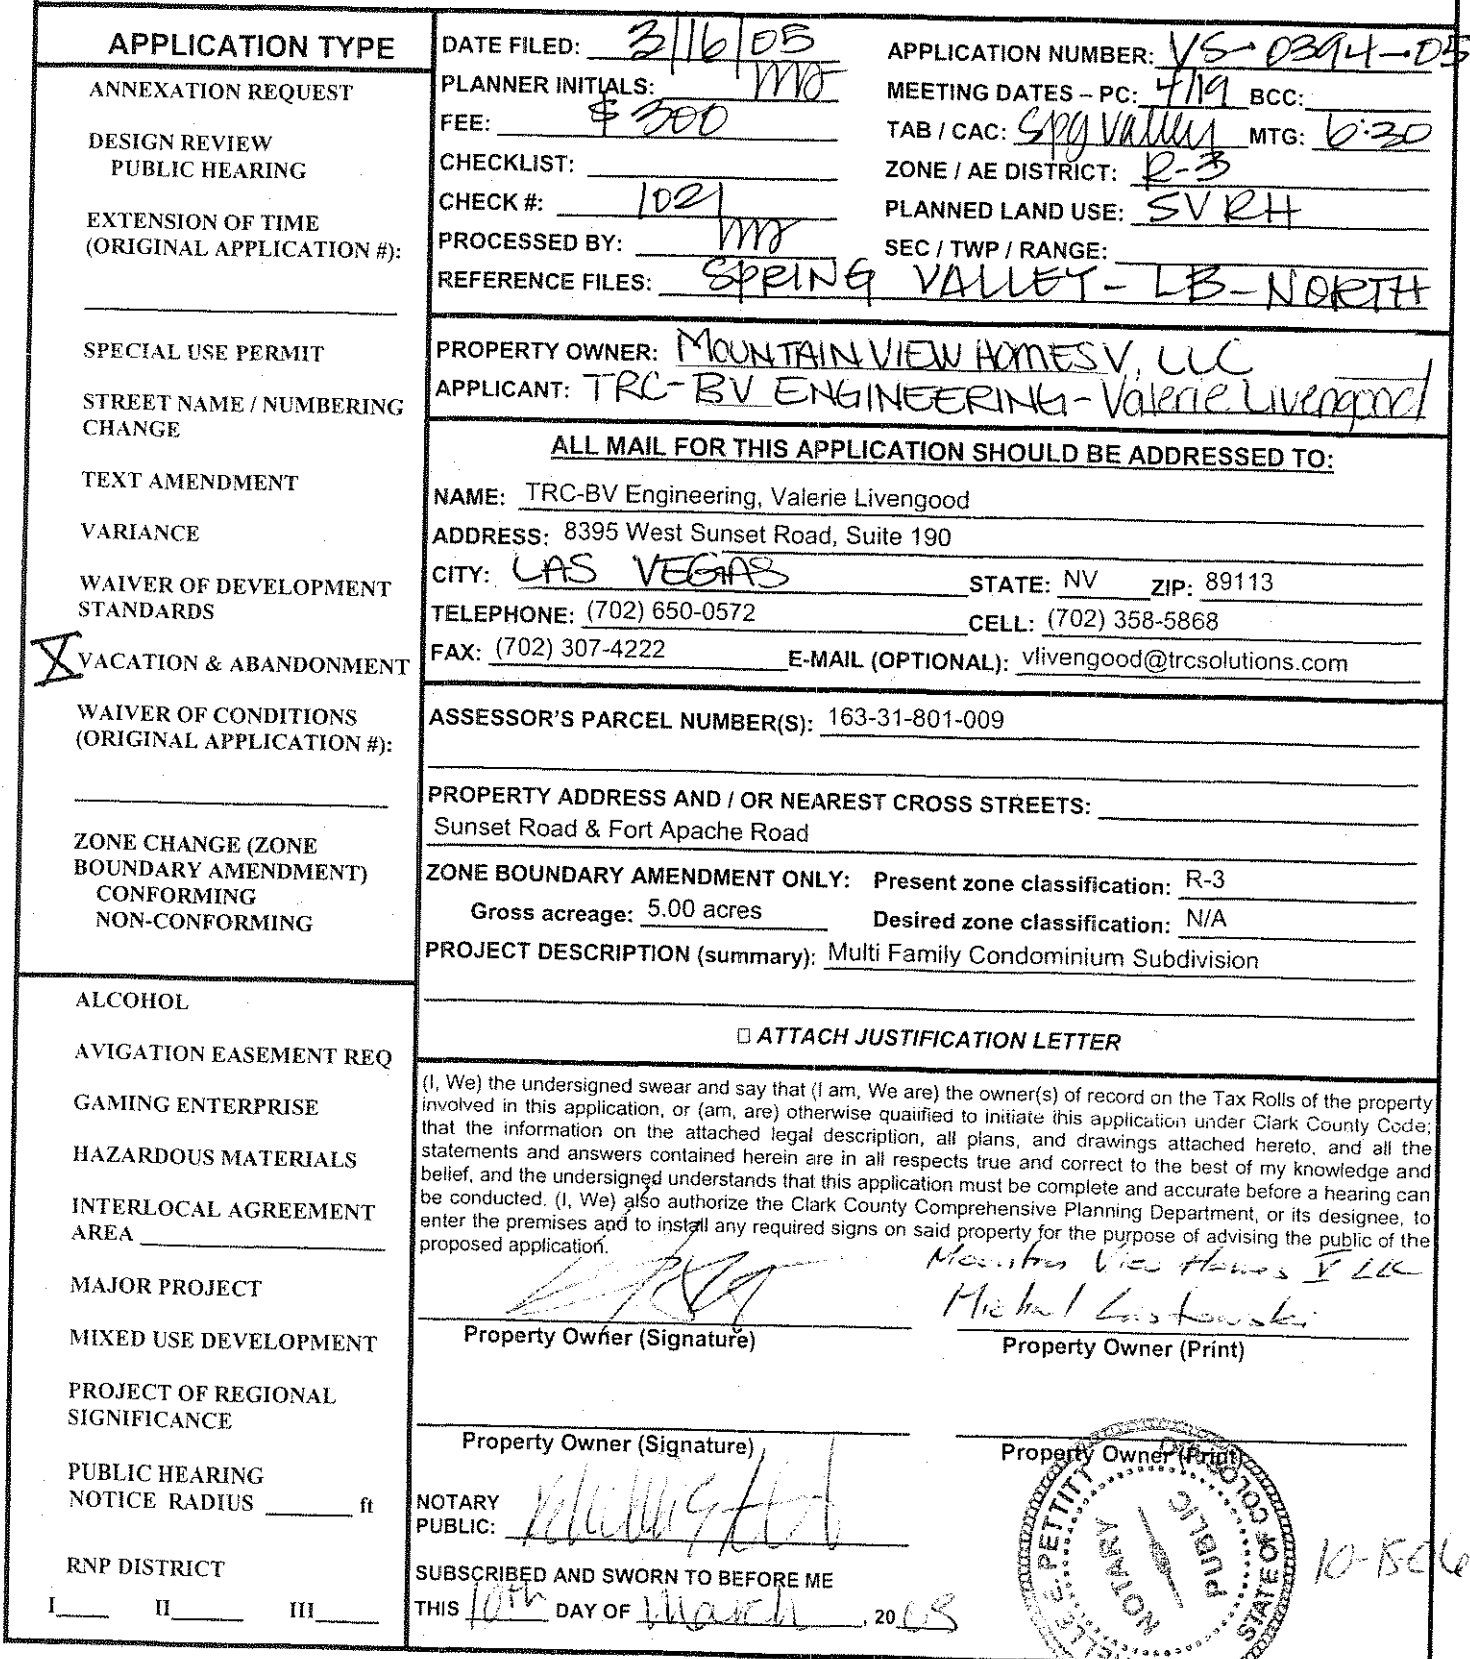 APPLICATION TYPE
ANNEXATION REQUEST
DESIGN REVIEW
PUBLIC HEARING
EXTENSION OF TIME
(ORIGINAL APPLICATION #):
SPECIAL USE PERMIT
STREET NAME / NUMBERING
CHANGE
TEXT AMENDMENT
VARIANCE
WAIVER OF DEVELOPMENT
STANDARDS
X VACATION & ABANDONMENT
WAIVER OF CONDITIONS
(ORIGINAL APPLICATION #):
ZONE CHANGE (ZONE
BOUNDARY AMENDMENT)
CONFORMING
NON-CONFORMING
ALCOHOL
AVIGATION EASEMENT REQ
GAMING ENTERPRISE
HAZARDOUS MATERIALS
INTERLOCAL AGREEMENT
AREA
MAJOR PROJECT
MIXED USE DEVELOPMENT
PROJECT OF REGIONAL
SIGNIFICANCE
PUBLIC HEARING
NOTICE RADIUS ft
RNP DISTRICT
I II III
DATE FILED: 3/16/05 APPLICATION NUMBER: VS-0394-05
PLANNER INITIALS: MEETING DATES – PC: 4/19 BCC:
FEE: $300 TAB / CAC: Spg Valley MTG: 6:30
CHECKLIST: ZONE / AE DISTRICT: R-3
CHECK #: 1021 PLANNED LAND USE: SV RH
PROCESSED BY: SEC / TWP / RANGE:
REFERENCE FILES: SPRING VALLEY-LB-NORTH
PROPERTY OWNER: MOUNTAIN VIEW HOMES V, LLC
APPLICANT: TRC-BV ENGINEERING-Valerie Livengood
ALL MAIL FOR THIS APPLICATION SHOULD BE ADDRESSED TO:
NAME: TRC-BV Engineering, Valerie Livengood
ADDRESS: 8395 West Sunset Road, Suite 190
CITY: LAS VEGAS STATE: NV ZIP: 89113
TELEPHONE: (702) 650-0572 CELL: (702) 358-5868
FAX: (702) 307-4222 E-MAIL (OPTIONAL): vlivengood@trcsolutions.com
ASSESSOR'S PARCEL NUMBER(S): 163-31-801-009
PROPERTY ADDRESS AND / OR NEAREST CROSS STREETS:
Sunset Road & Fort Apache Road
ZONE BOUNDARY AMENDMENT ONLY: Present zone classification: R-3
Gross acreage: 5.00 acres Desired zone classification: N/A
PROJECT DESCRIPTION (summary): Multi Family Condominium Subdivision
□ ATTACH JUSTIFICATION LETTER
(I, We) the undersigned swear and say that (I am, We are) the owner(s) of record on the Tax Rolls of the property
involved in this application, or (am, are) otherwise qualified to initiate this application under Clark County Code;
that the information on the attached legal description, all plans, and drawings attached hereto, and all the
statements and answers contained herein are in all respects true and correct to the best of my knowledge and
belief, and the undersigned understands that this application must be complete and accurate before a hearing can
be conducted. (I, We) also authorize the Clark County Comprehensive Planning Department, or its designee, to
enter the premises and to install any required signs on said property for the purpose of advising the public of the
proposed application.
Mountain View Homes V LLC
Michael
Property Owner (Signature) Property Owner (Print)
Property Owner (Signature) Property Owner (Print)
NOTARY
PUBLIC:
SUBSCRIBED AND SWORN TO BEFORE ME
THIS 10th DAY OF March, 20 05
E. PETTITT
NOTARY
PUBLIC
STATE OF COLORADO